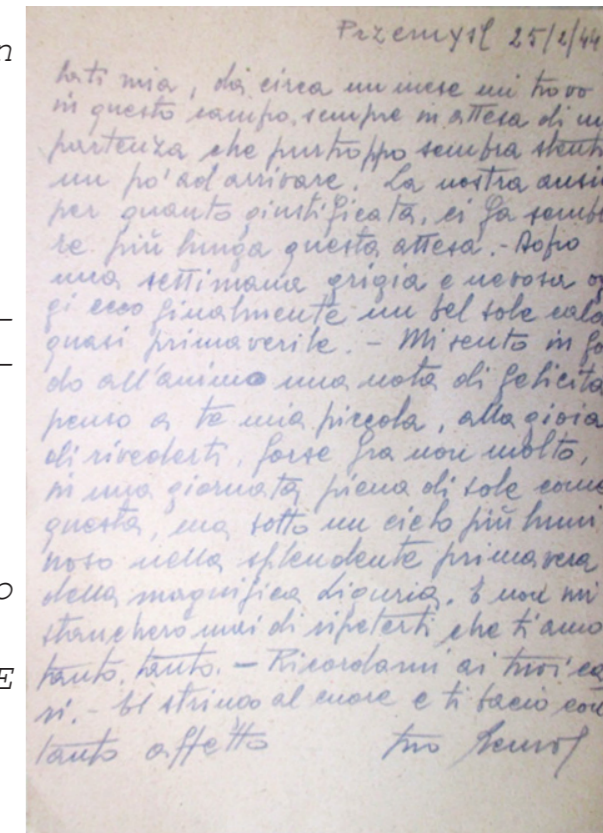 n
Przemysl 25/2/44
mia, da circa un mese mi trovo
in questo campo, sempre in attesa di un
partenza che purtroppo sembra stent
un po' ad arrivare. La nostra ansi
per quanto giustificata, ci fa semb
re più lunga questa attesa. - Dopo
una settimana grigia e nevosa og
gi ecco finalmente un bel sole cald
quasi primaverile. - Mi sento in fo
do all'animo una nota di felicità
penso a te mia piccola, alla gioia
di rivederti, forse fra non molto,
in una giornata piena di sole come
questa, ma sotto un cielo più lumi
noso nella splendente primavera
della magnifica Liguria. E non mi
stancherò mai di ripeterti che ti amo
o
tanto, tanto. - Ricordami ai tuoi ca
E
ri. - ti stringo al cuore e ti bacio con
tanto affetto tuo